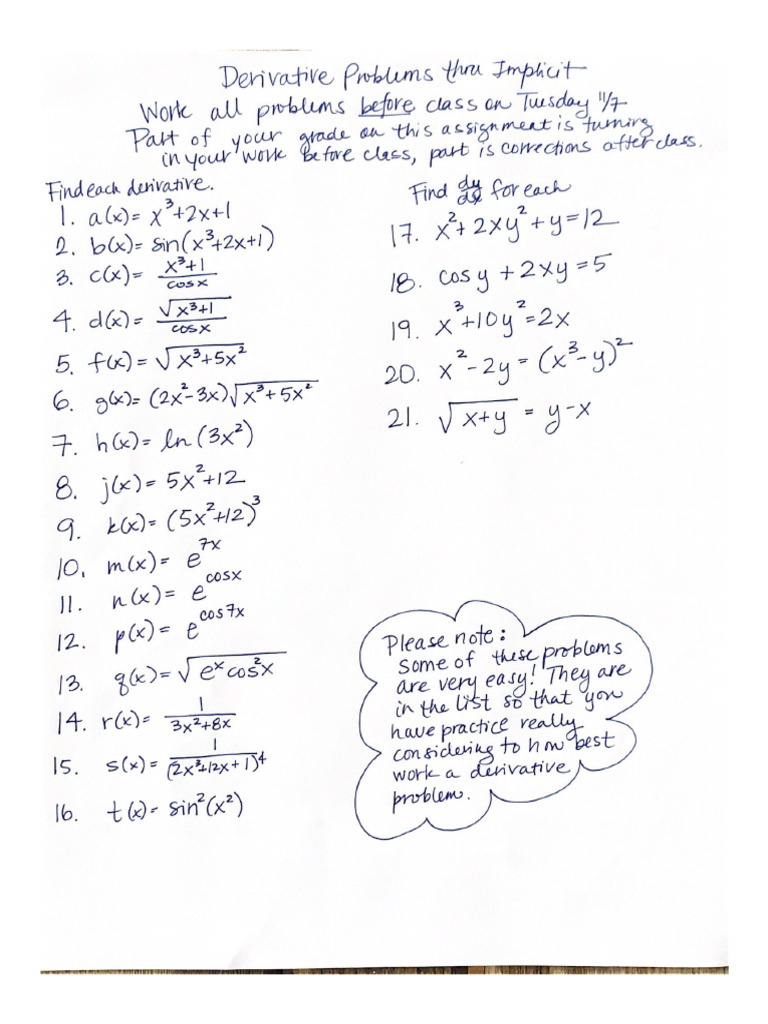 Derivative Problems thru Implicit
Work all problems before class on Tuesday 11/7
Part of your grade on this assignment is turning
in your work before class, part is corrections after class.
Find each derivative.
1. a(x)= x³+2x+1
2. b(x)= sin(x³+2x+1)
3. c(x)= (x³+1)/(cosx)
4. d(x)= √(x³+1)/(cosx)
5. f(x)= √(x³+5x²)
6. g(x)= (2x²-3x)√(x³+5x²)
7. h(x)= ln(3x²)
8. j(x)= 5x²+12
9. k(x)= (5x²+12)³
10. m(x)= e^(7x)
11. n(x)= e^(cosx)
12. p(x)= e^(cos7x)
13. q(x)= √(eˣcos²x)
14. r(x)= 1/(3x²+8x)
15. s(x)= 1/(2x³+12x+1)⁴
16. t(x)= sin²(x²)
Find dy/dx for each
17. x²+2xy²+y=12
18. cosy+2xy=5
19. x³+10y²=2x
20. x²-2y=(x³-y)²
21. √(x+y) = y-x
Please note:
Some of these problems
are very easy! They are
in the list so that you
have practice really
considering to how best
work a derivative
problem.